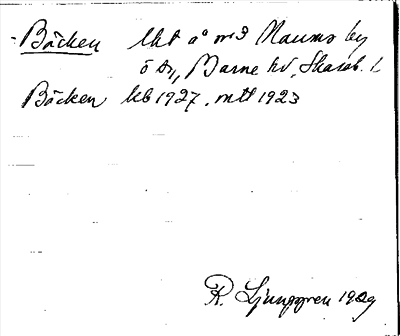 Bäcken lht å nr 3 Naums by
ö    , Barne hd, Skarab. l.
Bäcken kb 1927, mtl 1923
R. Ljunggren 1929